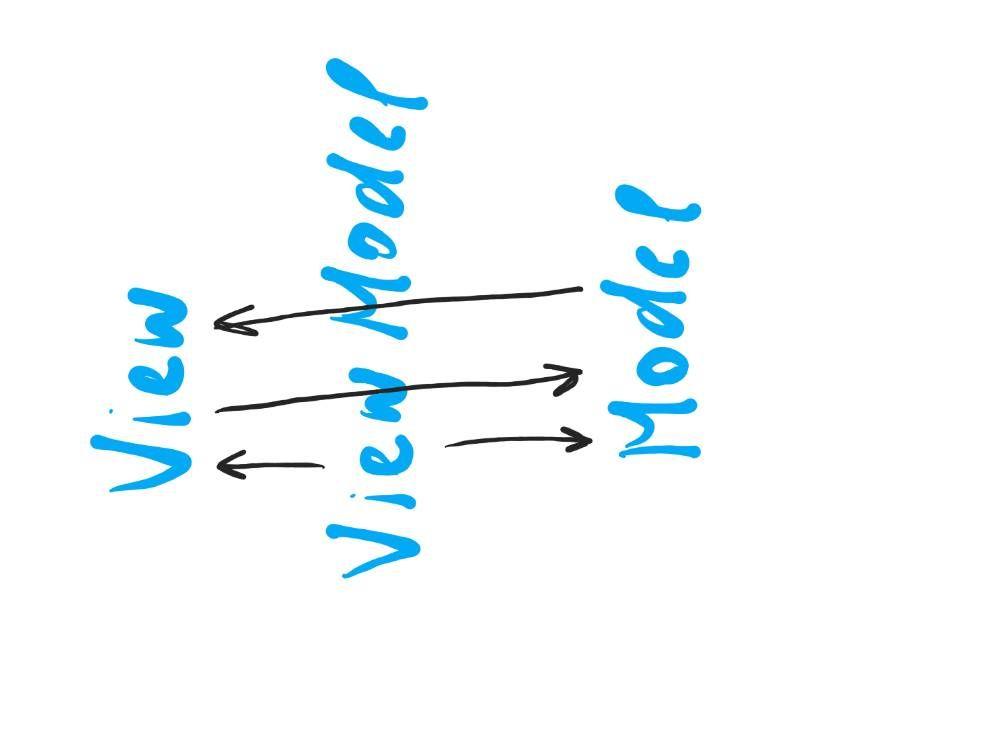 View
View Model
Model